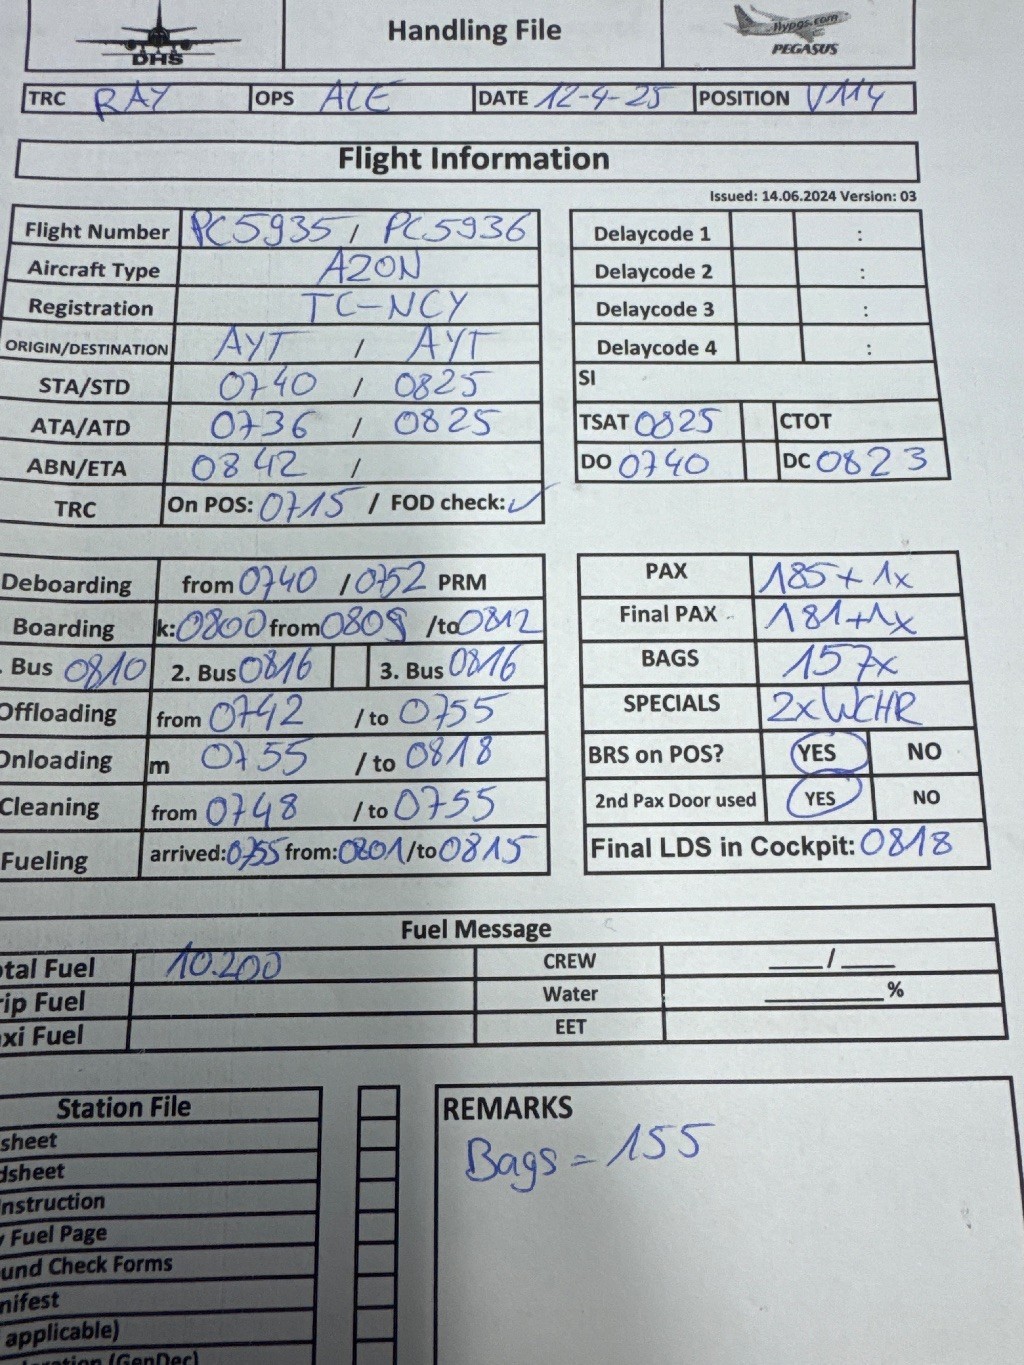 DHS
Handling File
flypgs.com
PEGASUS
TRC RAY OPS ALE DATE 12-4-25 POSITION V114
Flight Information
Issued: 14.06.2024 Version: 03
Flight Number PC5935 / PC5936
Aircraft Type A20N
Registration TC-NCY
ORIGIN/DESTINATION AYT / AYT
STA/STD 0740 / 0825
ATA/ATD 0736 / 0825
ABN/ETA 0842 /
TRC On POS: 0715 / FOD check: ✓
Delaycode 1 :
Delaycode 2 :
Delaycode 3 :
Delaycode 4 :
SI
TSAT 0825 CTOT
DO 0740 DC 0823
Deboarding from 0740 / 0752 PRM
Boarding k: 0800 from 0809 /to 0812
. Bus 0810 2. Bus 0816 3. Bus 0816
Offloading from 0742 / to 0755
Onloading m 0755 / to 0818
Cleaning from 0748 / to 0755
Fueling arrived: 0755 from: 0801 /to 0815
PAX 185+1x
Final PAX 181+1x
BAGS 157x
SPECIALS 2xWCHR
BRS on POS? YES NO
2nd Pax Door used YES NO
Final LDS in Cockpit: 0818
Fuel Message
otal Fuel 10.200 CREW ___/___
rip Fuel Water ______%
xi Fuel EET
Station File
sheet
dsheet
nstruction
Fuel Page
und Check Forms
nifest
applicable)
ration (GenDec)
REMARKS
Bags = 155